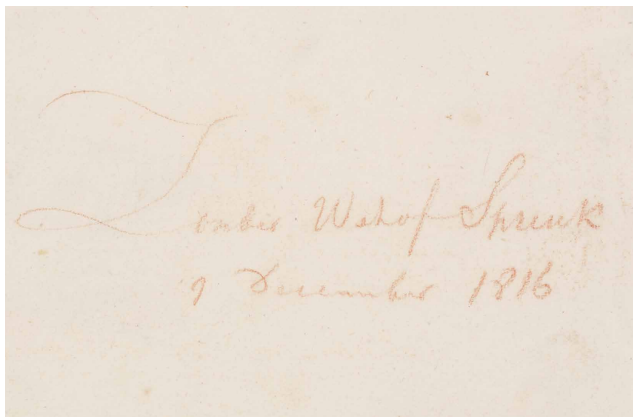 Zonder Wet of Spreuk
9 December 1816